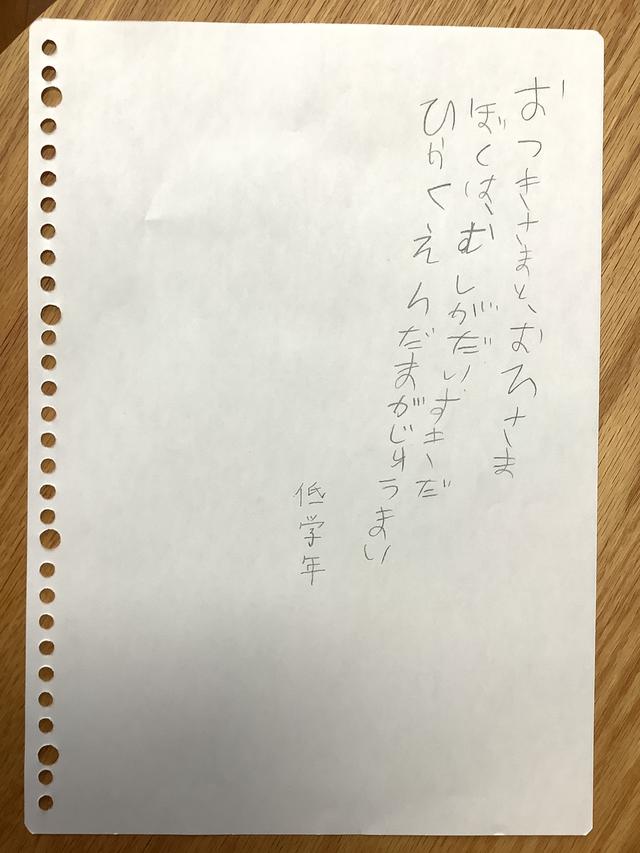 おつきさまと、おひさま
ぼくは、むしがだいすきだ
ひかくえんだまがじゅうまい
低学年